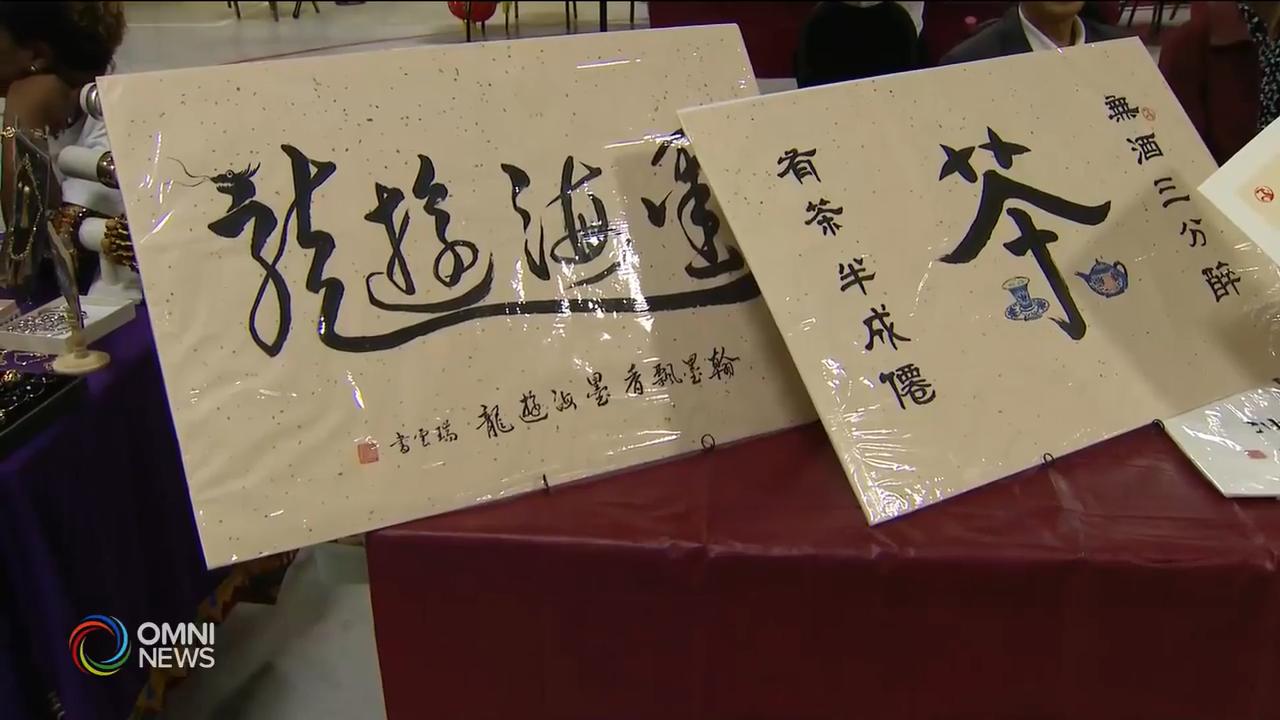 墨海遊龍
翰墨飄香墨海遊龍 瑞雲書
無酒三分醉
茶
有茶半成僊
OMNI
NEWS